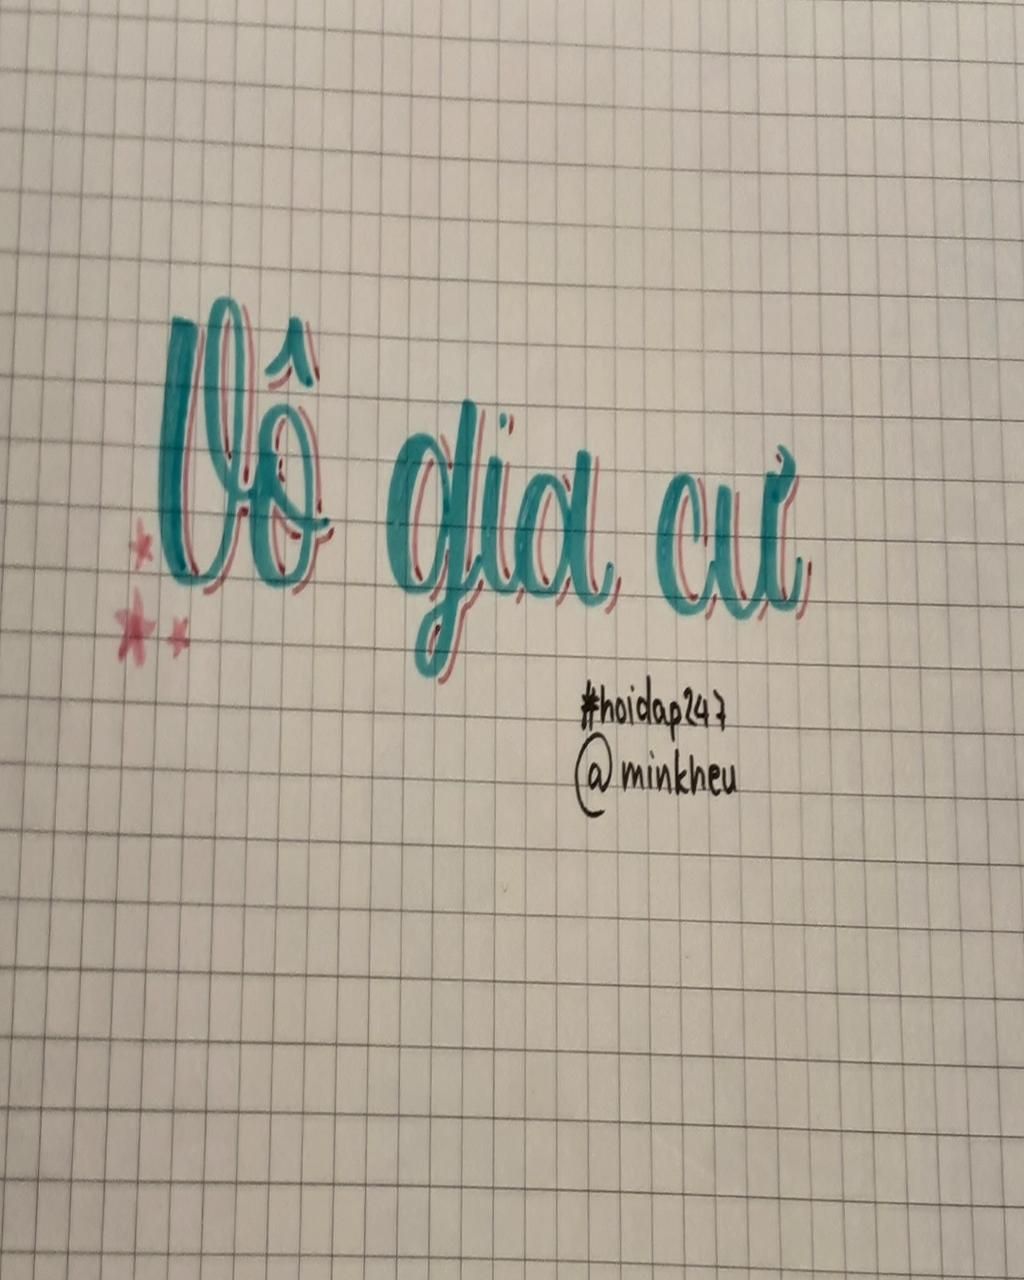 Vô gia cư
#hoidap247
@minkheu